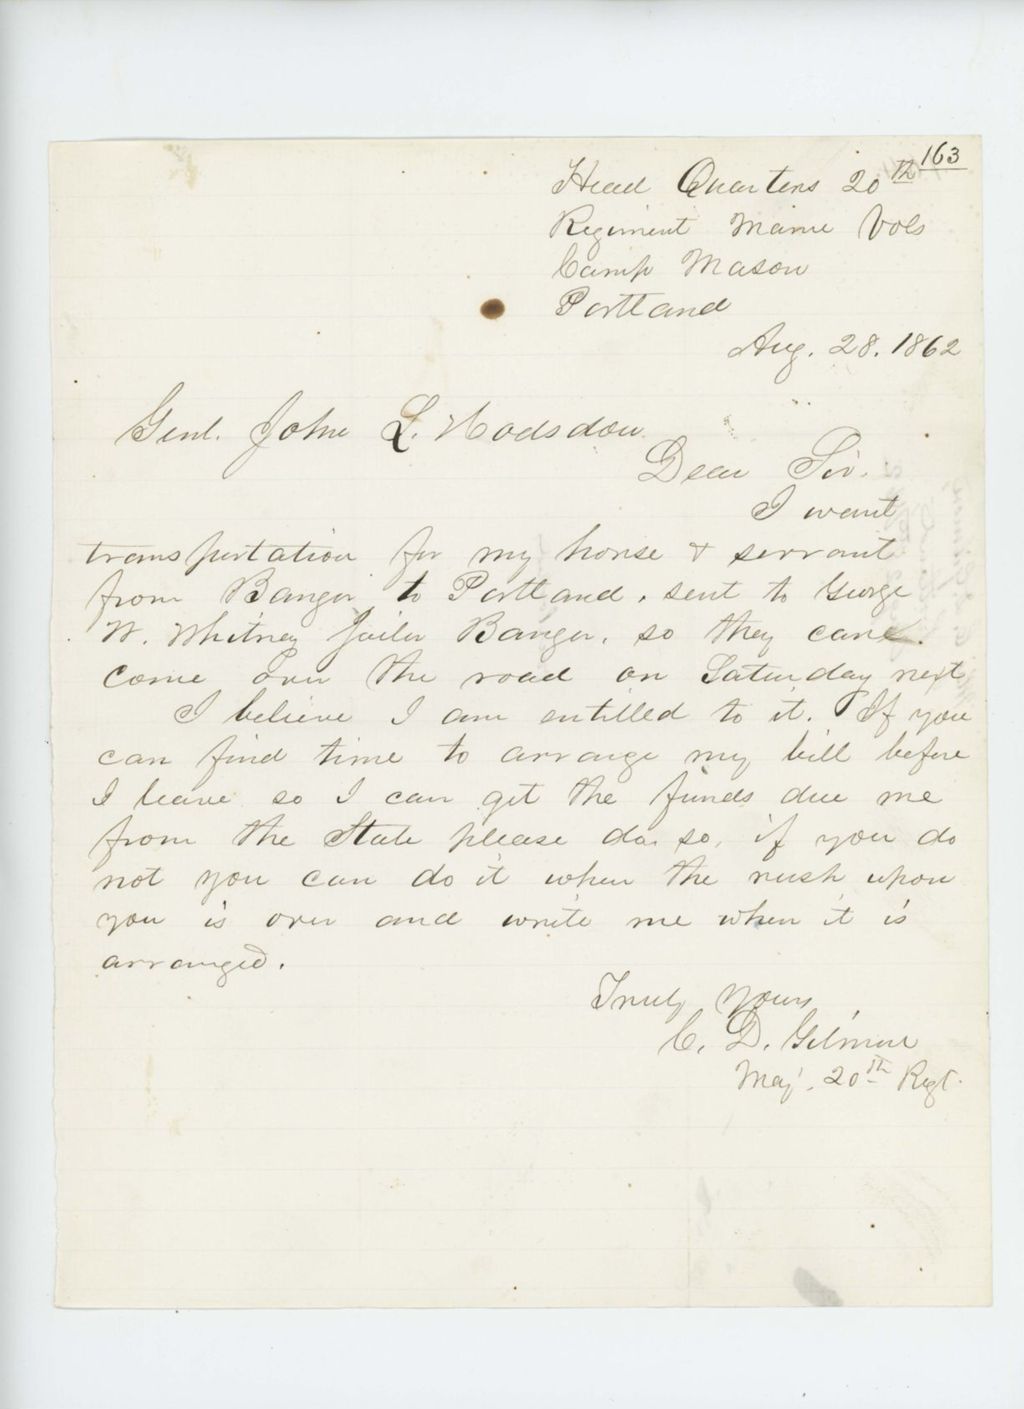 163
Head Quarters 20th
Regiment Maine Vols
Camp Mason
Portland
Aug. 28. 1862
Genl. John L. Hodsdon
Dear Sir.
I want
transportation for my horse & servant
from Bangor to Portland, sent to George
W. Whitney Jailer Bangor, so they can
come over the road on Saturday next
I believe I am entitled to it. If you
can find time to arrange my bill before
I leave so I can get the funds due me
from the State please do so, if you do
not you can do it when the rush upon
you is over and write me when it is
arranged.
Truly yours,
C. D. Gilmore
Maj. 20th Regt.